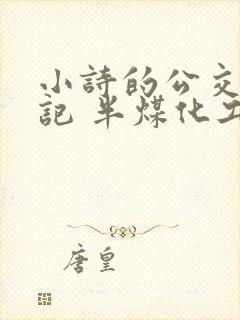 小詩的公交
記 半煤化工
唐皇